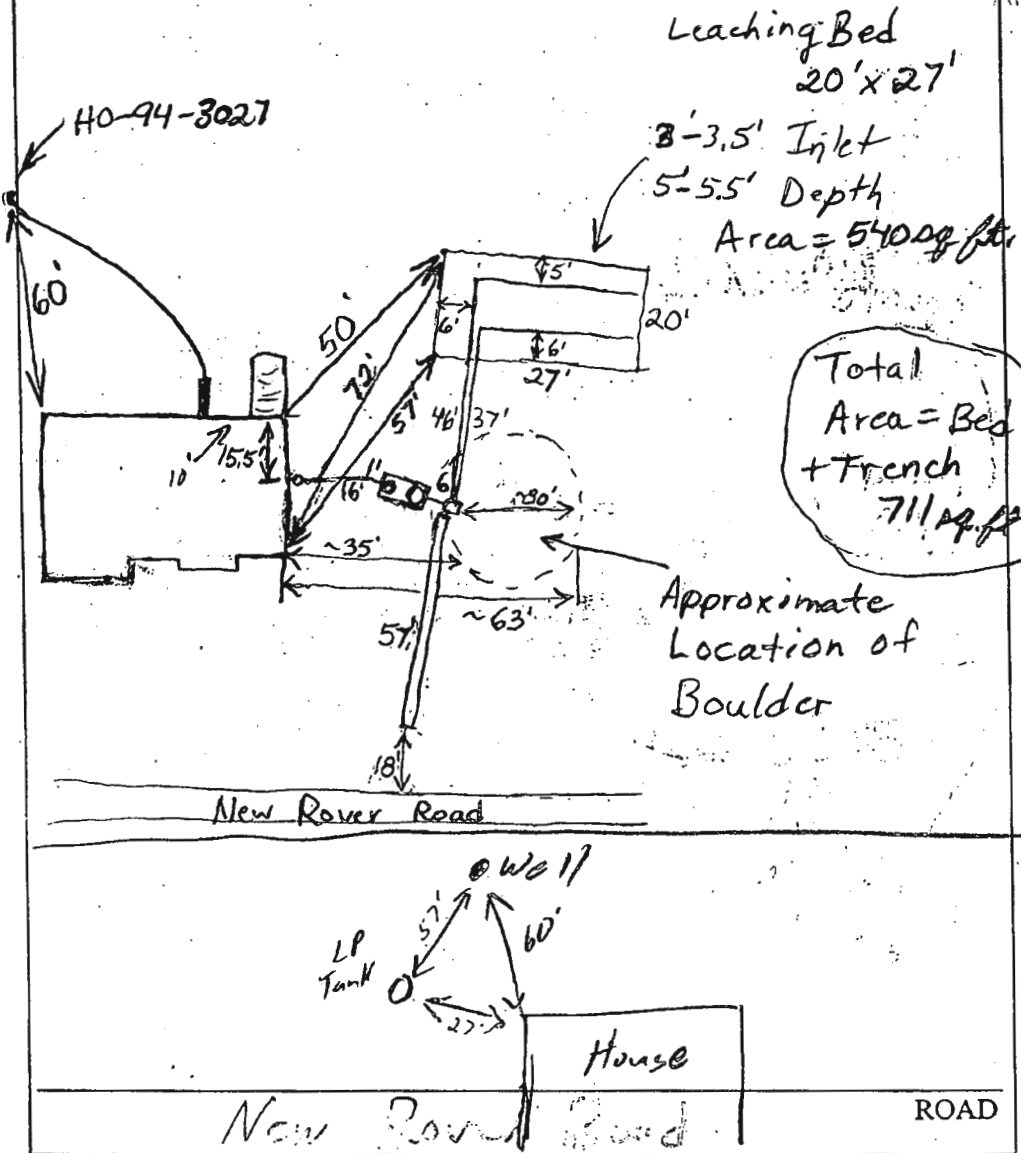 Leaching Bed
20' x 27'
HO-94-3027
3'-3.5' Inlet
5'-5.5' Depth
Area = 540 sq ft.
60'
50'
72'
57'
5'
6'
20'
6'
27'
46'
37'
Total
Area = Bed
+ Trench
711 sq. ft
10'
15.5'
16'
1'
6'
~30'
~35'
~63'
57'
Approximate
Location of
Boulder
18'
New Rover Road
Well
57'
60'
LP
Tank
27'
House
New Rover Road
ROAD